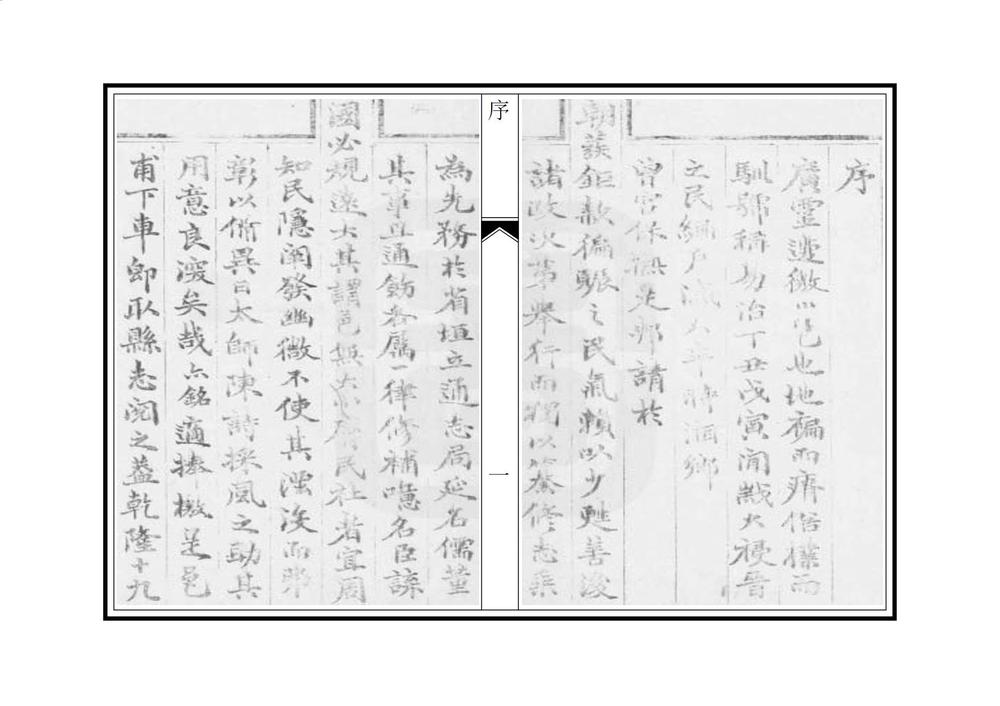 序
廣靈邊徼小邑也地褊而瘠俗樸而
馴號稱易治丁丑戊寅間歲大祲晉
之民
曾宮保
請於
朝議鉅款徧賑之民氣賴以少甦善後
諸政次第舉行而獨以纂修志乘
為先務於省垣立通志局延名儒董
其事並通飭各屬一律修補噫名臣謀
國必規遠大其謂邑無大小膺民社者宜周
知民隱闡發幽微不使其湮沒而
彰以備異日太師陳詩採風之助其
用意良深矣哉六銘適捧檄是邑
甫下車即取縣志閱之蓋乾隆十九
序
一